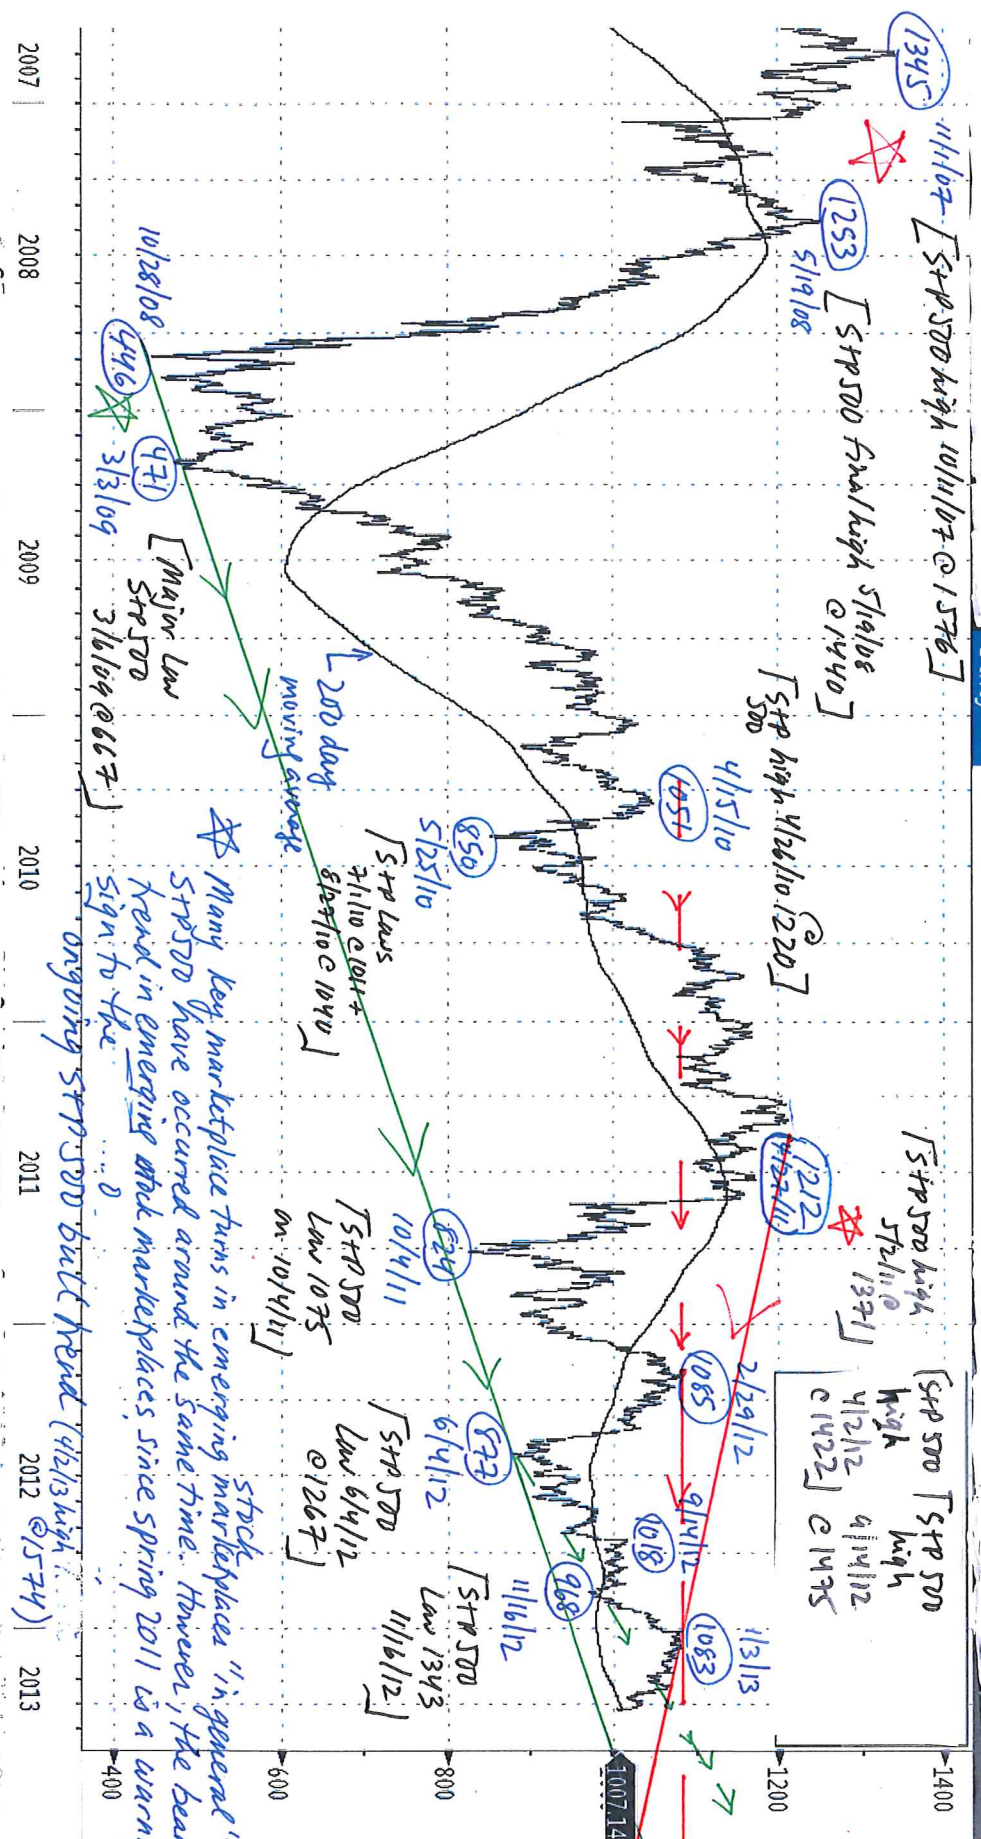 1345
11/1/07
[S+P500 high 10/11/07 @ 1576]
1253
5/19/08
[S+P500 final high 5/19/08
@1440]
10/28/08
446
471
3/3/09
[Major low
S+P500
3/6/09 @ 667]
200 day
moving average
4/15/10
1051
[S+P high 4/26/10 @ 1220]
500
850
5/25/10
[S+P lows
7/1/10 @ 1011 +
8/27/10 @ 1040]
1212
4/27/11
[S+P500 high
5/2/11 @
1371]
824
10/4/11
[S+P500
low 1075
on 10/4/11]
2/29/12
1085
[S+P 500
high
4/2/12
@ 1422]
877
6/4/12
[S+P500
low 6/4/12
@ 1267]
9/14/12
1018
[S+P 500
high
9/14/12
@ 1475
968
11/16/12
[S+P500
low 1343
11/16/12]
1/3/13
1083
Many key marketplace turns in emerging stock marketplaces "in general"
S+P500 have occurred around the same time. However, the bear
trend in emerging stock marketplaces since spring 2011 is a warn
sign to the
ongoing S+P500 bull trend (4/2/13 high
@1574)
1400
1200
1007.14
800
600
400
2007
2008
2009
2010
2011
2012
2013